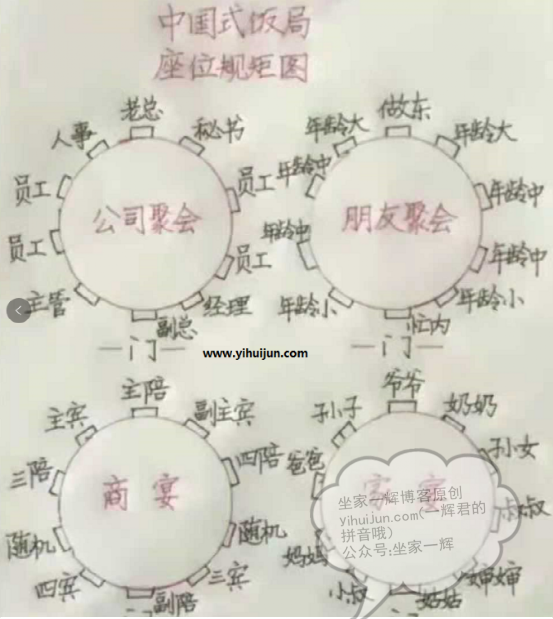 中国式饭局
座位规矩图
老总
人事
秘书
员工
员工
公司聚会
员工
员工
主管
经理
副总
一门一
做东
年龄大
年龄大
年龄中
年龄中
朋友聚会
年龄中
年龄中
年龄小
年龄小
忙内
一门一
www.yihuijun.com
主陪
主宾
副主宾
三陪
四陪
商宴
随机
随机
四宾
三宾
副陪
爷爷
孙子
奶奶
孙女
爸爸
家宴
叔叔
妈妈
婶婶
小叔
姑姑
坐家一辉博客原创
yihuijun.com(一辉君的
拼音哦)
公众号;坐家一辉